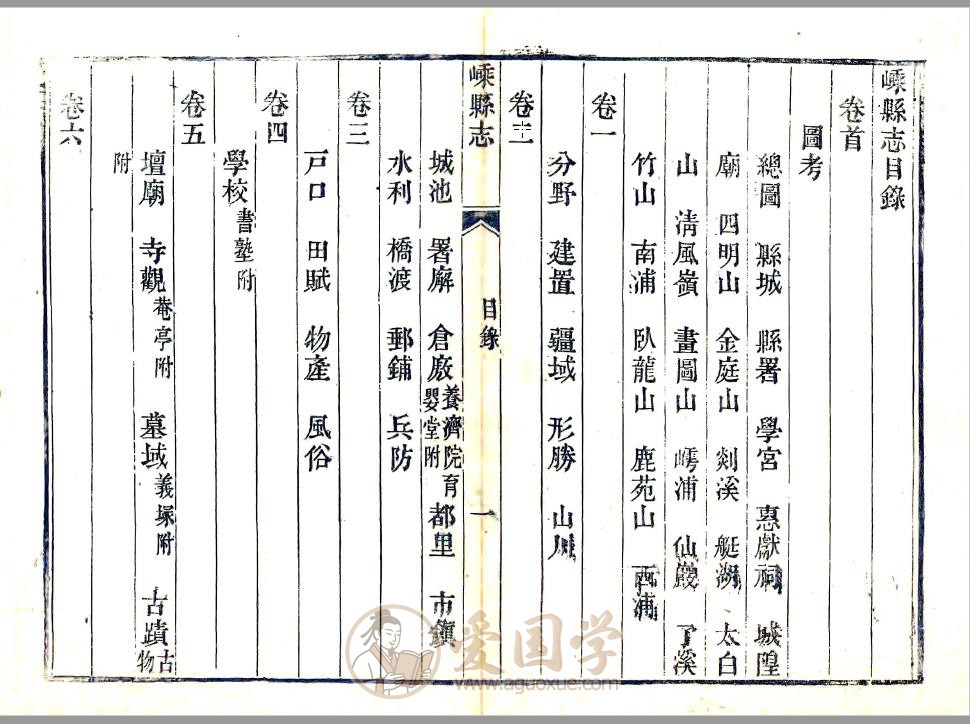 嵊縣志目錄
卷首
圖考
總圖 縣城 縣署 學宮 惠獻祠 城隍
廟 四明山 金庭山 剡溪 艇湖 太白
山 清風嶺 畫圖山 嶀浦 仙巖 了溪
竹山 南浦 臥龍山 鹿苑山 西浦
卷一
分野 建置 疆域 形勝 山川
卷二
嵊縣志 目錄 一
城池 署廨 倉廒養濟院育嬰堂附 都里 市鎮
水利 橋渡 郵鋪 兵防
卷三
戸口 田賦 物產 風俗
卷四
學校書塾附
卷五
壇廟 寺觀菴亭附 墓域義塚附 古蹟古物
附
卷六
爱国学
www.aguoxue.com